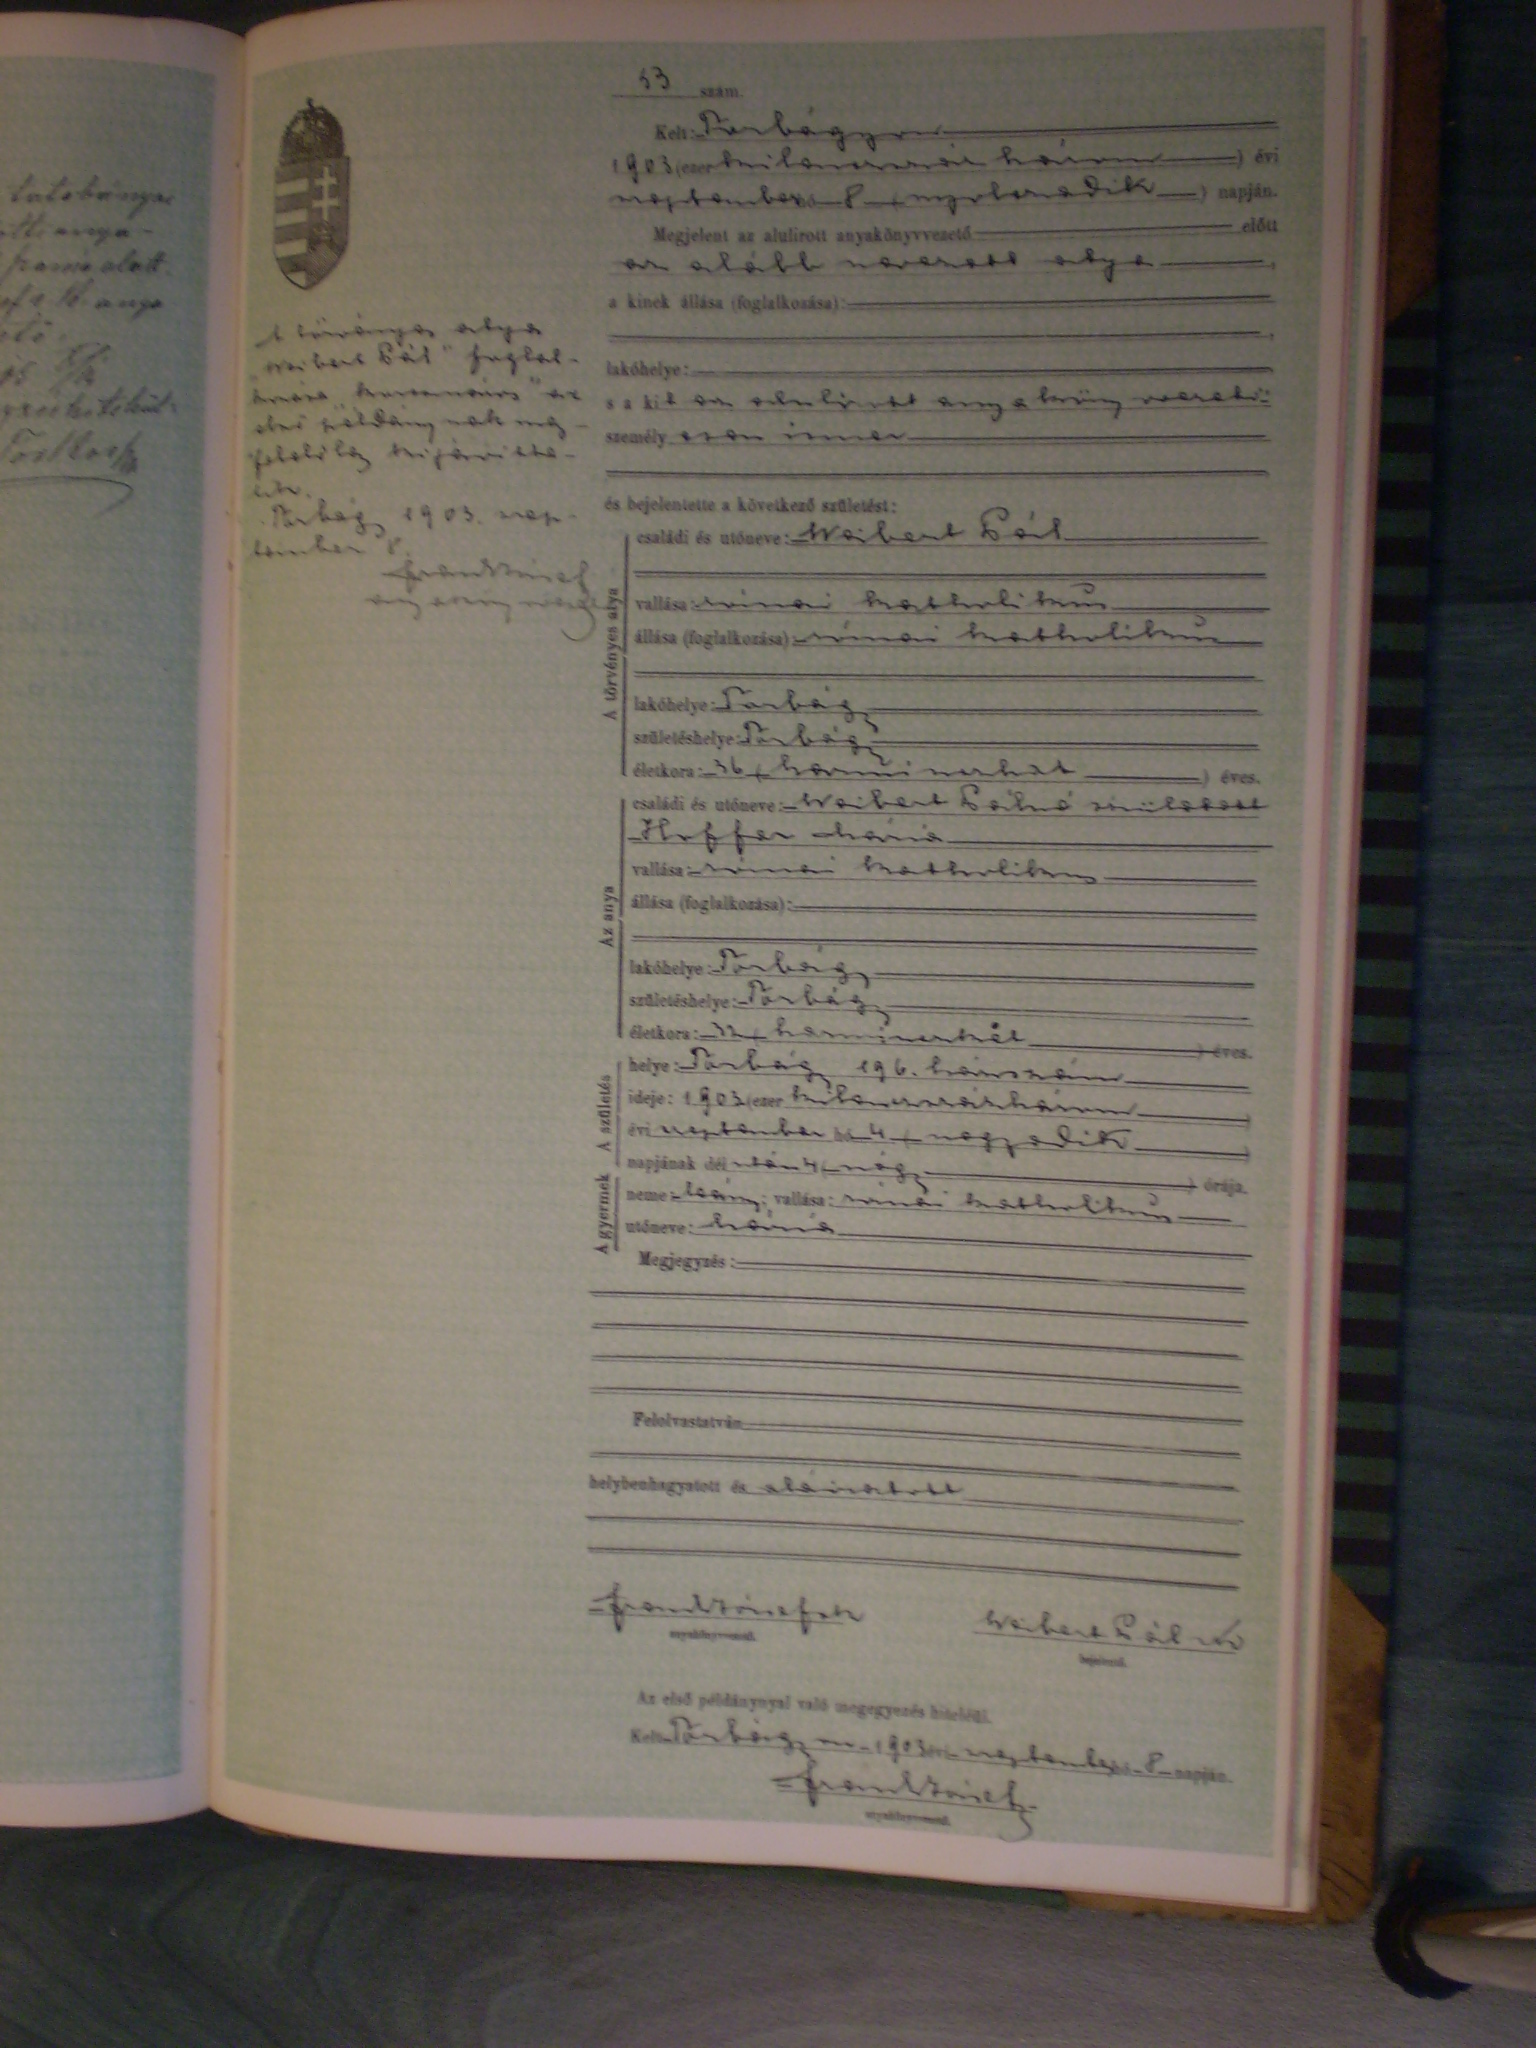 53 szám.
Kelt: Torbágyon
1903 (ezer kilenczszáz három) évi
szeptember hó 8 (nyolczadik) napján.
Megjelent az alulirott anyakönyvvezető előtt
az alább nevezett atya,
a kinek állása (foglalkozása):
lakóhelye:
s a kit az alulirott anyakönyvvezető
személyesen ismer
és bejelentette a következő születést:
A törvényes atya
családi és utóneve: Weibert Pál
vallása: római katholikus
állása (foglalkozása): római katholikus
lakóhelye: Torbágy
születéshelye: Torbágy
életkora: 36 (harminczhat) éves.
Az anya
családi és utóneve: Weibert Pálné született
Hoffer Mária
vallása: római katholikus
állása (foglalkozása):
lakóhelye: Torbágy
születéshelye: Torbágy
életkora: 32 (harminczkét) éves.
A születés
helye: Torbágy 196. házszám
ideje: 1903 (ezer kilenczszázhárom)
évi szeptember hó 4 (negyedik)
napjának dél után 4 (négy) órája.
A gyermek
neme: leány; vallása: római katholikus
utóneve: Mária
Megjegyzés:
Felolvastatván
helybenhagyatott és aláiratott
anyakönyvvezető.
Weibert Pál
bejelentő.
Az első példánynyal való megegyezés hiteléül.
Kelt Torbágyon 1903 évi szeptember hó 8 napján.
anyakönyvvezető.
A törvényes atya
"Weibert Pál" foglal-
kozása az
első példánynak meg-
felelőleg kijavitta-
tik.
Torbágy 1903. szep-
tember 8.
anyakönyvvezető